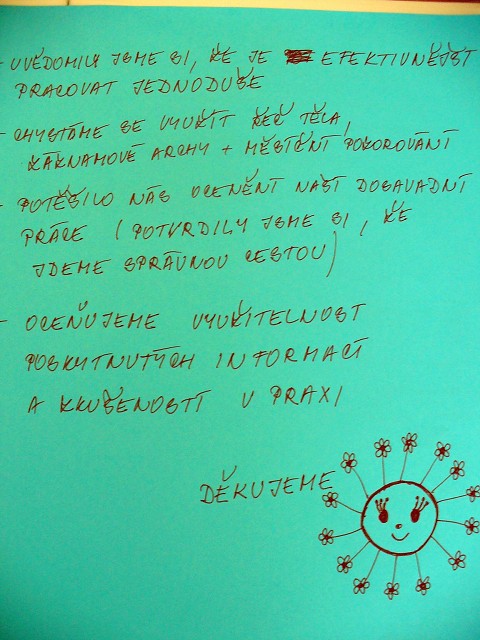 - UVĚDOMILY JSME SI, ŽE JE EFEKTIVNĚJŠÍ
PRACOVAT JEDNODUŠE
- CHYSTÁME SE VYUŽÍT ŘEČ TĚLA,
ZÁZNAMOVÉ ARCHY + MĚSÍČNÍ POZOROVÁNÍ
- POTĚŠILO NÁS OCENĚNÍ NAŠÍ DOSAVADNÍ
PRÁCE (POTVRDILY JSME SI, ŽE
JDEME SPRÁVNOU CESTOU)
- OCEŇUJEME VYUŽITELNOST
POSKYTNUTÝCH INFORMACÍ
A ZKUŠENOSTÍ V PRAXI
DĚKUJEME